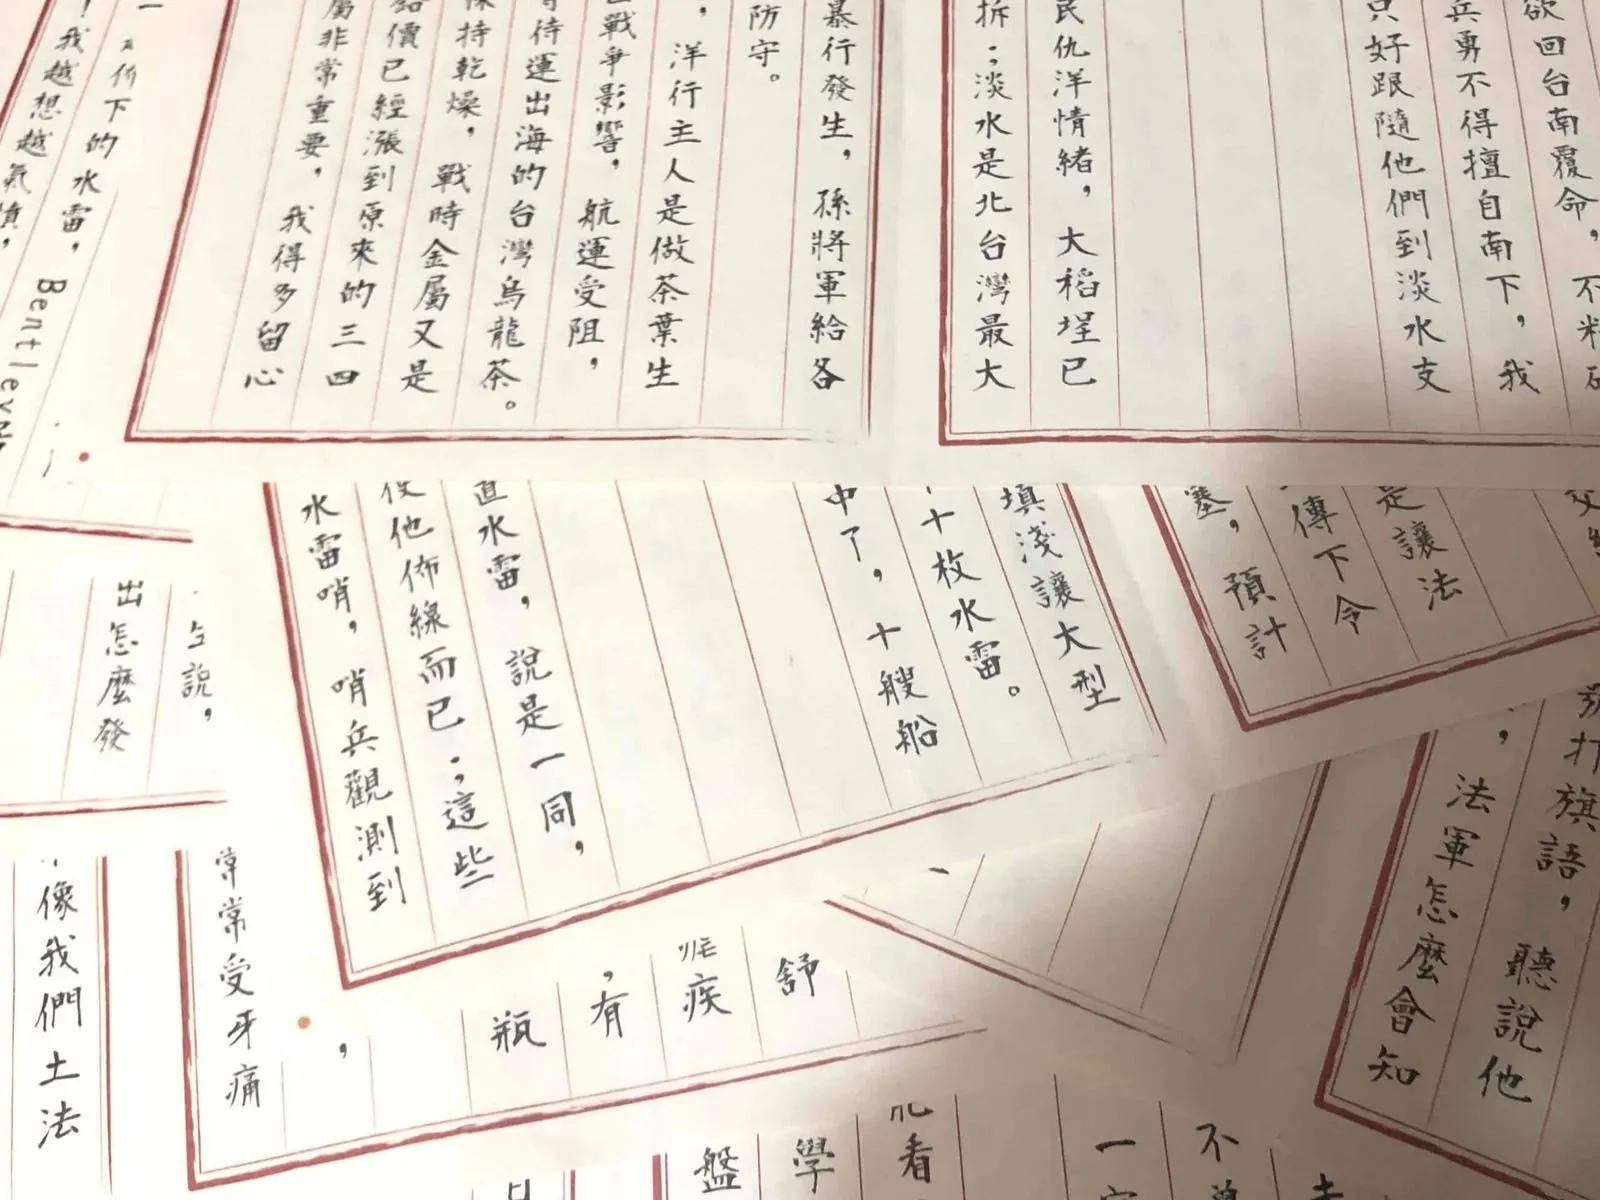 欲回台南覆命，不料
兵勇不得擅自南下，我
只好跟隨他們到淡水支
民仇洋情緒，大稻埕已
拆；淡水是北台灣最大
暴行發生，孫將軍給各
防守。
，洋行主人是做茶葉生
戰爭影響，航運受阻，
待運出海的台灣烏龍茶。
保持乾燥，戰時金屬又是
價已經漲到原來的三四
屬非常重要，我得多留心
佈下的水雷，Bentley
！我越想越氣憤，
是讓法
傳下令
塞，預計
填淺讓大型
十枚水雷。
中了，十艘船
直水雷，說是一同，
他佈線而已；這些
水雷哨，哨兵觀測到
說，
出怎麼發
打旗語，聽說他
，法軍怎麼會知
舒
疾
，有
瓶
，
常常受牙痛
像我們土法
不
一
看
學
盤